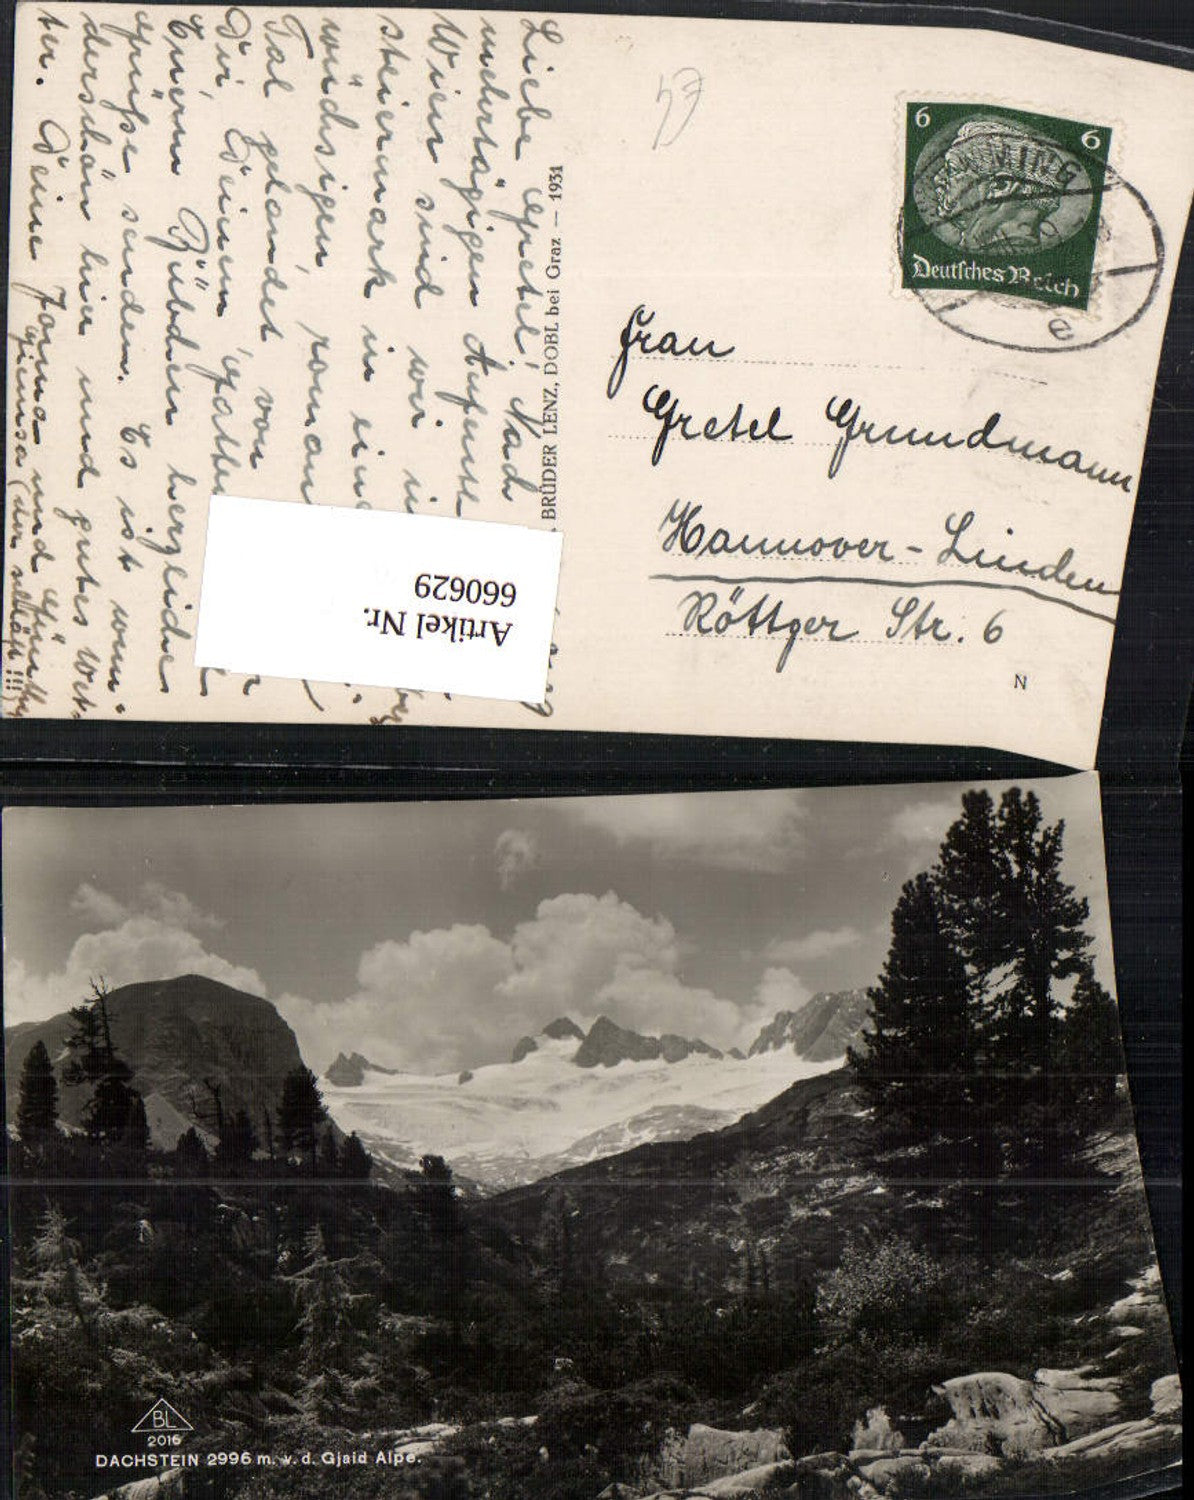 Liebe Gretel! Nach
mehrtägigen Aufent
Wien sind wir in
steiermark in eine
wüchsigen, roman
Tal gelandet von
Dir, Deinem Gatte
Euerm Bübchen herzliche
Grüße senden. Es ist wun-
derschön hier und gutes Wet-
ter. Deine Jonna und Günther
BRÜDER LENZ, DOBL bei Graz — 1931
6 6
Deutsches Reich
Frau
Gretel Grundmann
Hannover-Linden
Röttger Str. 6
N
Artikel Nr.
660629
BL
2016
DACHSTEIN 2996 m. v. d. Gjaid Alpe.